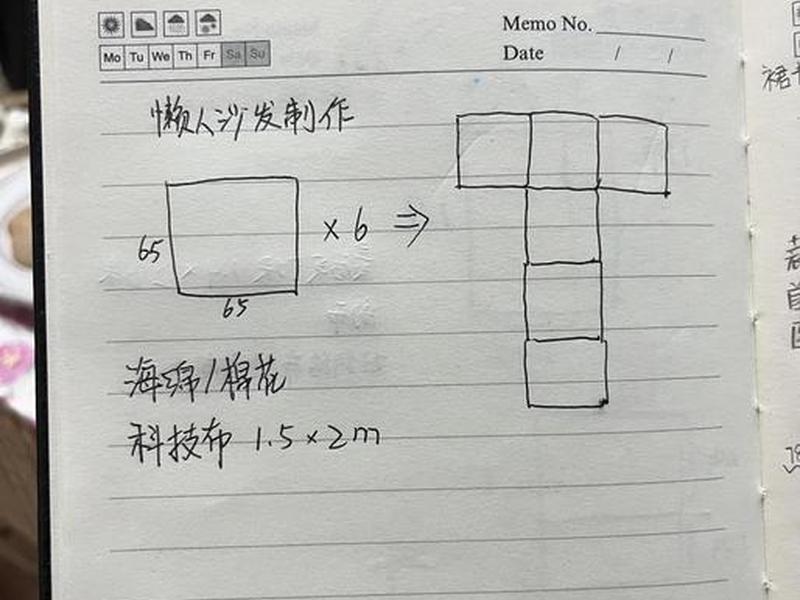 Memo No.
Mo Tu We Th Fr Sa Su
Date / /
懒人沙发制作
65
× 6 ⇒
65
海绵/棉花
科技布 1.5×2m